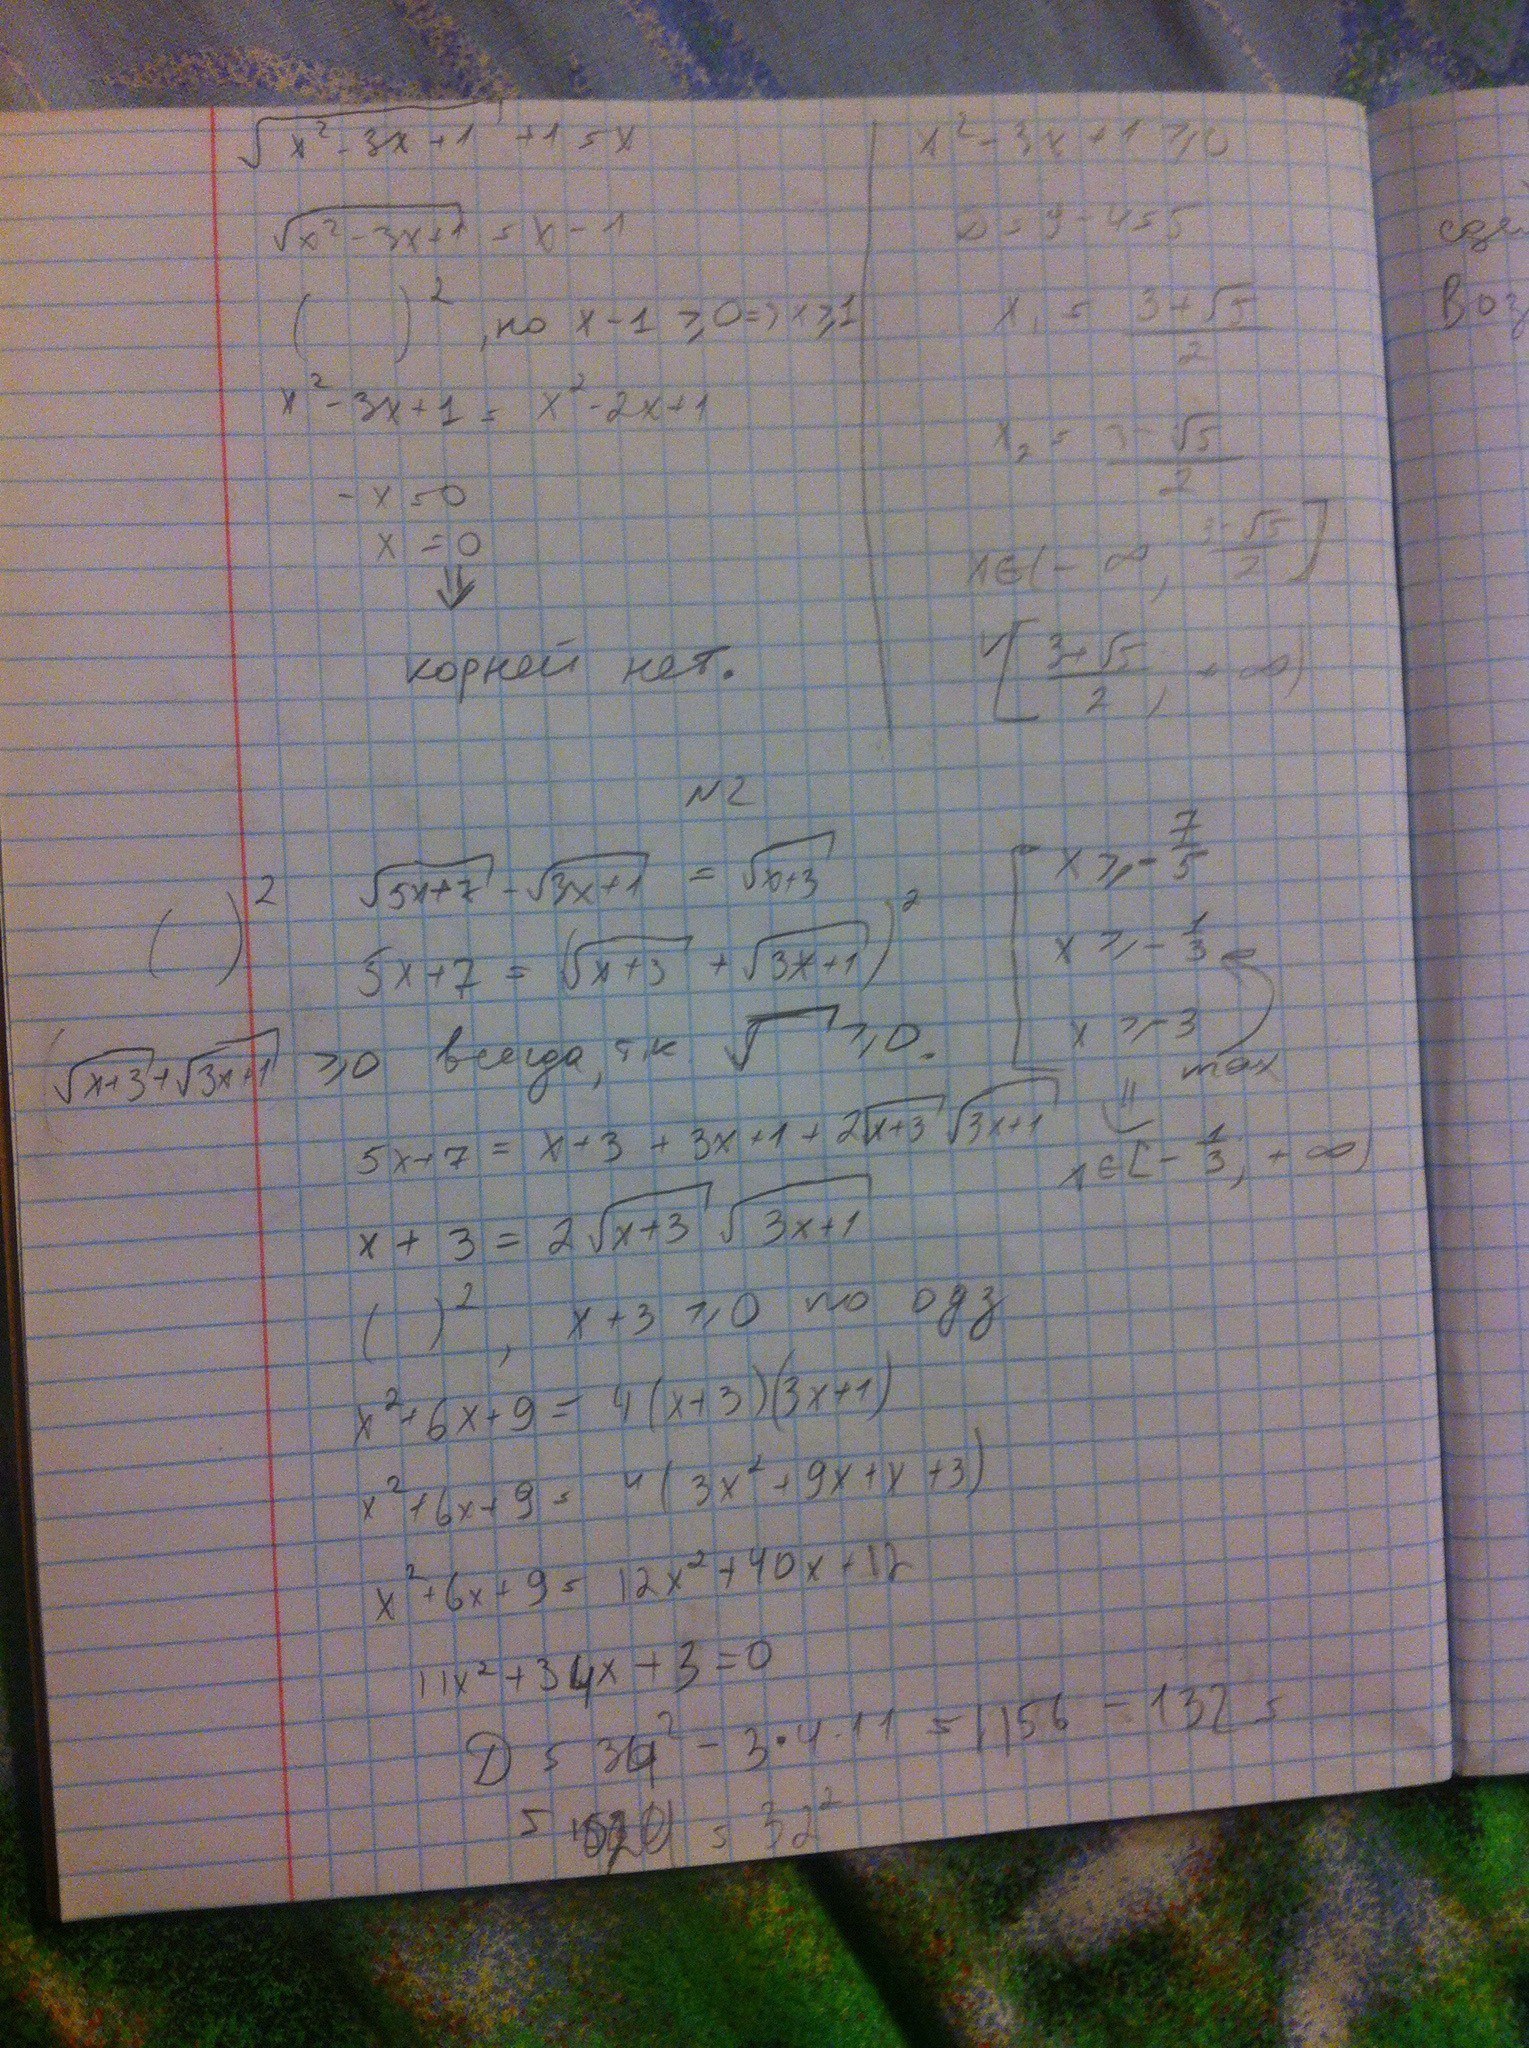 √(x²-3x+1) +1 = x
√(x²-3x+1) = x-1
( )², но x-1 ≥ 0 => x ≥ 1
x²-3x+1 = x²-2x+1
-x=0
x=0
⇓
корней нет.
x²-3x+1 ≥ 0
D = 9-4=5
x₁ = (3+√5)/2
x₂ = (3-√5)/2
x∈(-∞, (3-√5)/2]
∨[(3+√5)/2, +∞)
N2
( )² √(5x+7) - √(3x+1) = √(x+3)
5x+7 = (√(x+3) + √(3x+1))²
(√(x+3)+√(3x+1) ≥ 0 всегда, т.к √ ≥ 0.
5x+7 = x+3 + 3x+1 + 2√(x+3) √(3x+1)
x + 3 = 2√(x+3) √(3x+1)
( )², x+3 ≥ 0 по одз
x²+6x+9 = 4(x+3)(3x+1)
x²+6x+9 = 4(3x²+9x+x+3)
x²+6x+9 = 12x²+40x+12
11x²+34x+3=0
D = 34² - 3·4·11 = 1156 - 132 =
= 32²
x ≥ -7/5
x ≥ -1/3
x ≥ -3
max
⇓
x∈[-1/3; +∞)
Воз